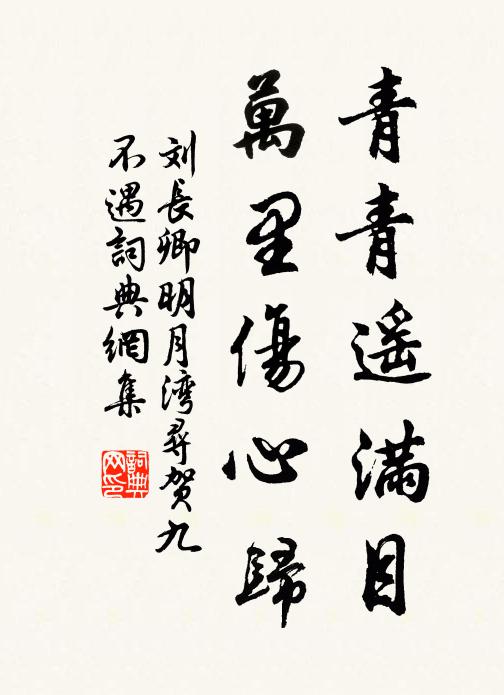 青青遥满目
萬里傷心歸
刘長卿明月湾尋贺九
不遇詞典網集
詞典网印